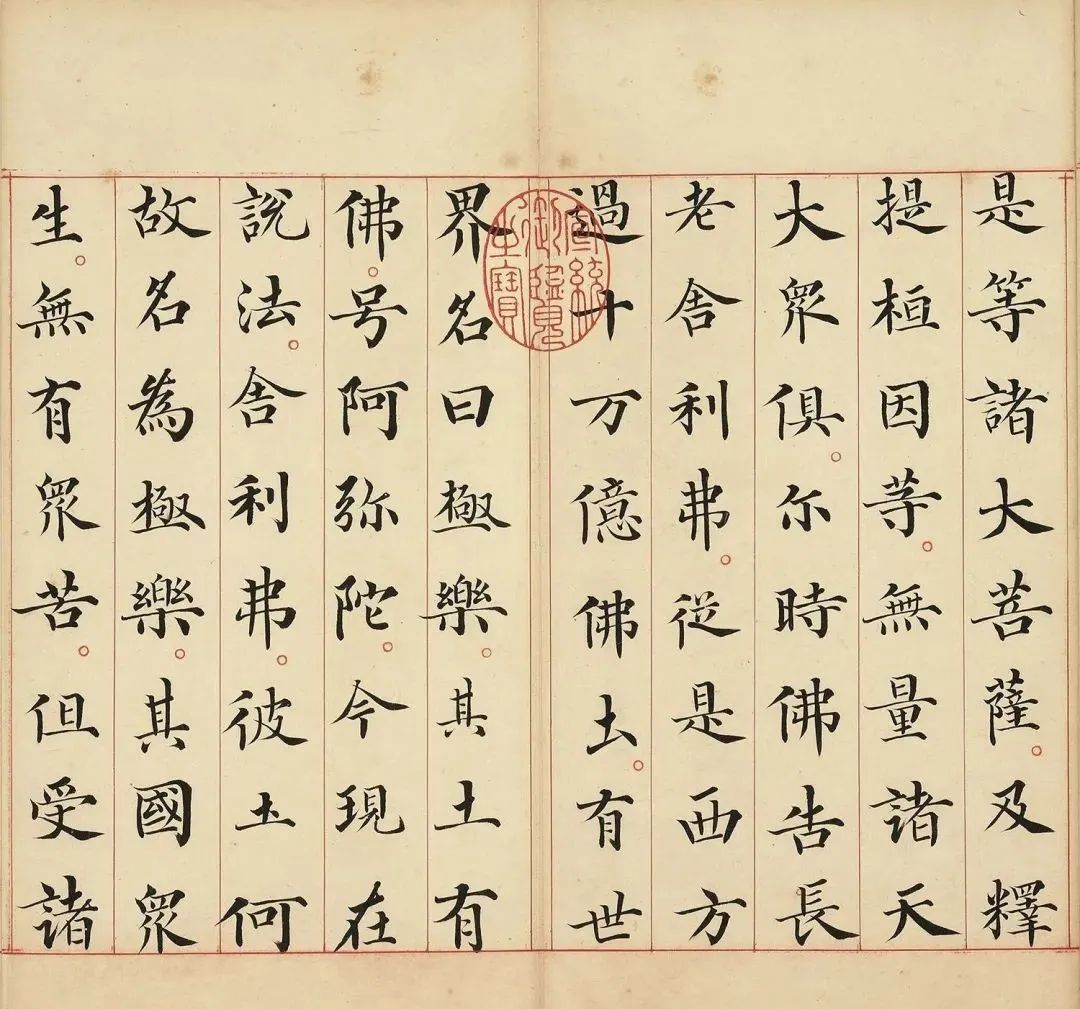 是等諸大菩薩。及釋
提桓因等。無量諸天
大眾俱。尔時佛告長
老舍利弗。從是西方
過十万億佛土。有世
界名曰極樂。其土有
佛。号阿弥陀。今現在
說法。舍利弗。彼土何
故名為極樂。其國眾
生。無有眾苦。但受諸
宣統
御覽
之寶